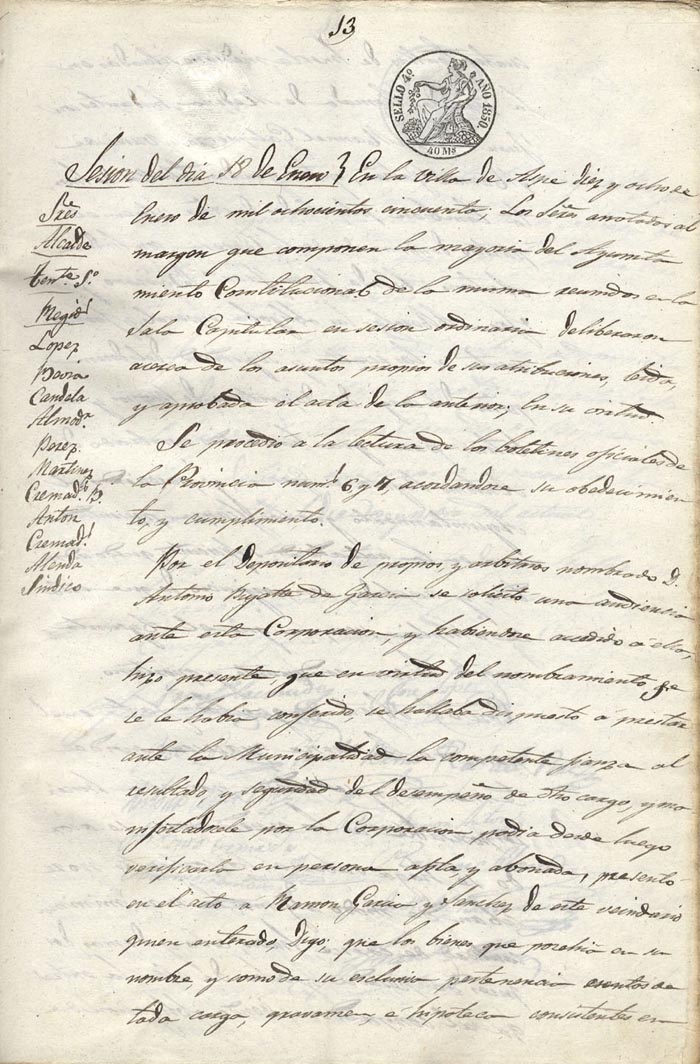 13
SELLO 4º AÑO 1850.
40 Ms
Sesion del dia 18 de Enero } En la villa de Aspe diez y ocho de
Enero de mil ochocientos cincuenta, Los Señs anotados al
margen que componen la mayoria del Ayunta
miento Constitucional de la misma reunidos en la
Sala Capitular en sesion ordinaria deliberaron
acerca de los asuntos propios de sus atribuciones, leida,
y aprobada el acta de la anterior; En su virtud.
Se procedió a la lectura de los boletines oficiales de
la Provincia nums 6, y 7, acordandose su obedecimien
to, y cumplimiento.
Por el Depositario de propios y arbitrios nombrado D.
Antonio de Garcia se solicitó una audiencia
ante esta Corporacion, y habiendose accedido á ella,
hizo presente, que en virtud del nombramiento, qe
se le habia conferido, se hallaba dispuesto á prestar
ante la Municipalidad la competente fianza al
resultado, y seguridad del desempeño de dho cargo, y no
por la Corporacion podia desde luego
verificarla en persona apta y abonada, presentó
en el acto a Ramon Garcia y Sanchez de este vecindario
quien enterado, Digo; que los bienes que posehia en su
nombre, y como de su esclusiva pertenencia esentos de
toda carga, gravamen, e hipoteca consistentes en
Sres
Alcalde
Tente So
Regids
Lopez
Pavia
Candela
Almoda
Perez
Martinez
Cremads B.
Anton
Cremads
Alenda
Sindico